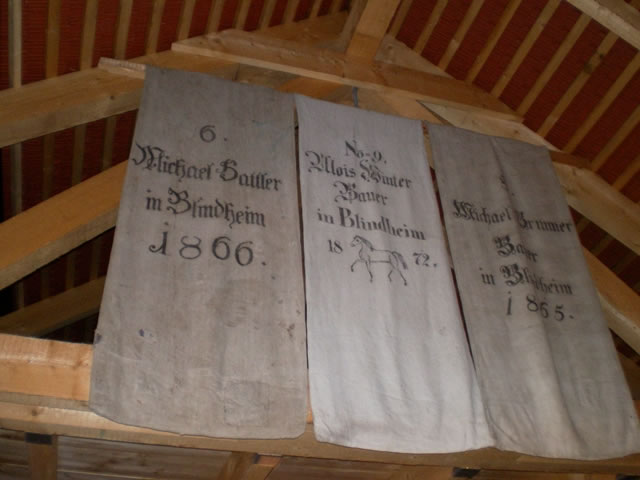 6.
Michael Sattler
in Blindheim
1866.
No. 9.
Alois Winter
Bauer
in Blindheim
18 72.
Michael
Bauer
in Blindheim
1865.